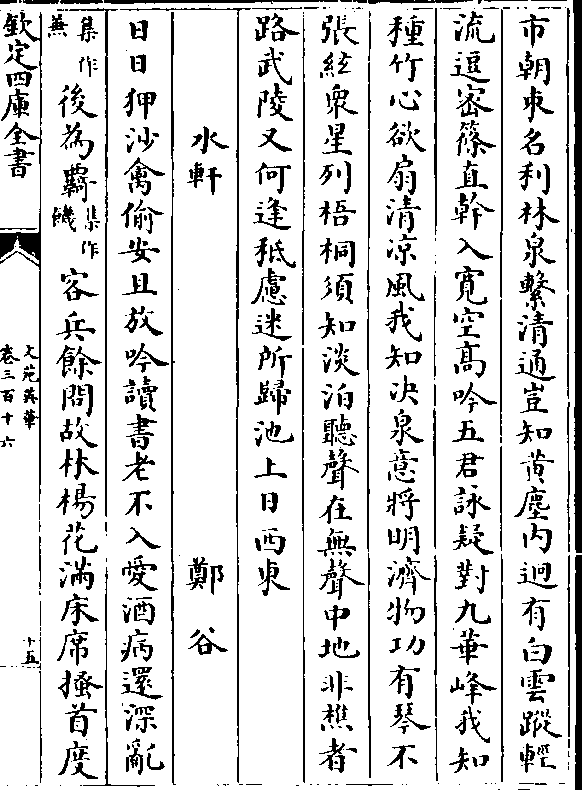 市朝束名利林泉繫清通豈知黄塵内迥有白雲蹤輕
流逗密篠直幹入寛空髙吟五君詠疑對九華峰我知
種竹心欲扇清凉風我知决泉意將明濟物功有琴不
張絃衆星列梧桐須知淡泊聽聲在無聲中地非樵者
路武陵又何逢秪慮迷所歸池上日西東
水軒　鄭谷
日日狎沙禽偷安且放吟讀書老不入愛酒病還深亂
集作無後為羇集作機客兵餘問故林楊花滿床席搔首度
欽定四庫全書
文苑英華
卷三百十六
十五